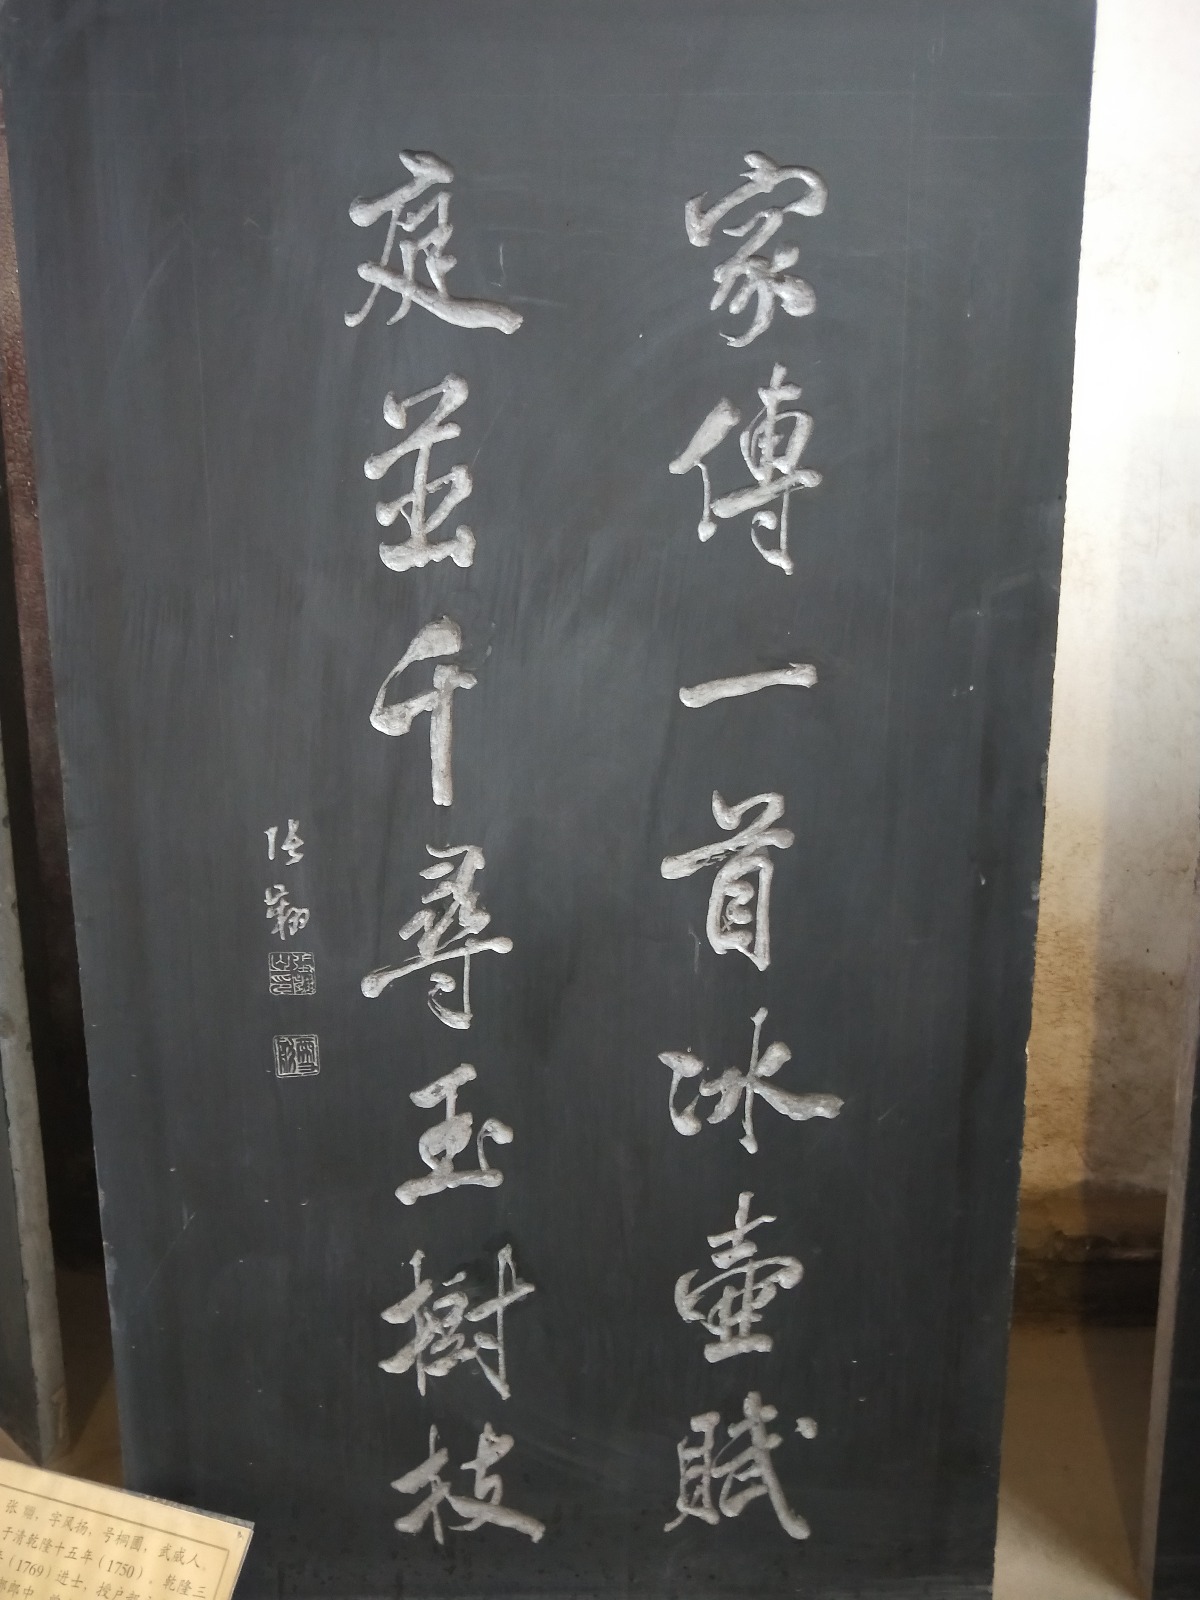 家傳一首冰壺賦
庭並千尋玉樹枝
张翽
张翽，字凤扬，号桐圃，武威人。
于清乾隆十五年（1750）。乾隆三
（1769）进士，授户部
郎中